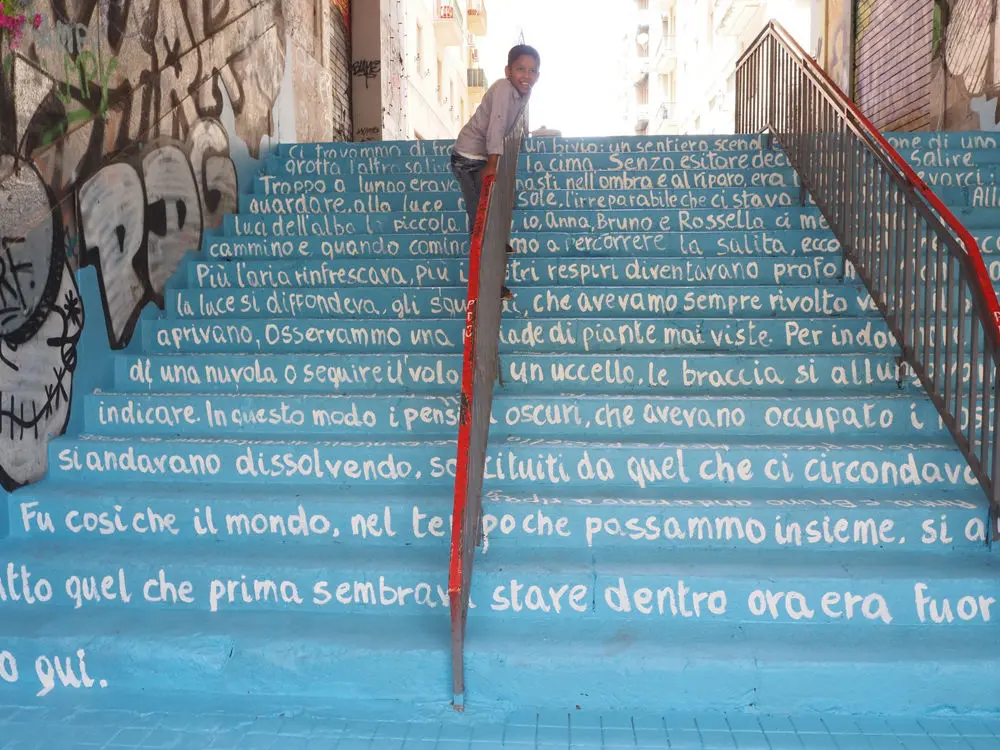 Ci travammo di un bivio: un sentiero scend one di uno
grotta l'altro saliv la cima. Senza esitare deci salire.
Troppo a lungo erava asti nell'ombra e al riparo era varci a
guardare alla luce sole, l'irreparabile che ci stava All
luce dell'alba la piccola io, Anna, Bruno e Rossella ci m
cammino e quando cominc mo a percorrere la salita, ecco
Più l'aria rinfrescava, più i tri respiri diventavano profo
la luce si diffondeva, gli squ i, che avevamo sempre rivolto v
aprivano, Osservammo una ade di piante mai viste. Per indov
di una nuvola o seguire il volo un uccello, le braccia si allung
indicare. In questo modo i pensi oscuri, che avevano occupato i n
si andavano dissolvendo, so tituiti da quel che ci circondava
Fu così che il mondo, nel te po che passammo insieme, si a
tto quel che prima sembrav stare dentro ora era fuor
o qui.